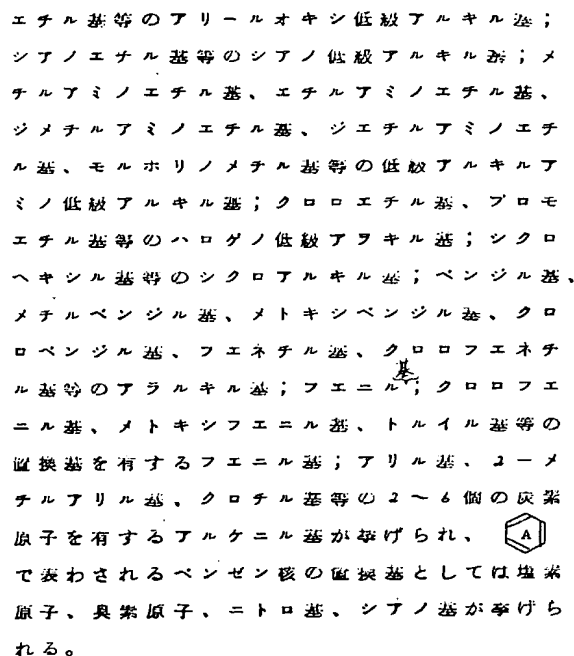 エチル基等のアリールオキシ低級アルキル基；
シアノエチル基等のシアノ低級アルキル基；メ
チルアミノエチル基、エチルアミノエチル基、
ジメチルアミノエチル基、ジエチルアミノエチ
ル基、モルホリノメチル基等の低級アルキルア
ミノ低級アルキル基；クロロエチル基、ブロモ
エチル基等のハロゲノ低級アラキル基；シクロ
ヘキシル基等のシクロアルキル基；ベンジル基、
メチルベンジル基、メトキシベンジル基、クロ
ロベンジル基、フエネチル基、クロロフエネチ
ル基等のアラルキル基；フエニル基；クロロフエ
ニル基、メトキシフエニル基、トルイル基等の
置換基を有するフエニル基；アリル基、2－メ
チルアリル基、クロチル基等の2～6個の炭素
原子を有するアルケニル基が挙げられ、 A
で表わされるベンゼン核の置換基としては塩素
原子、臭素原子、ニトロ基、シアノ基が挙げら
れる。